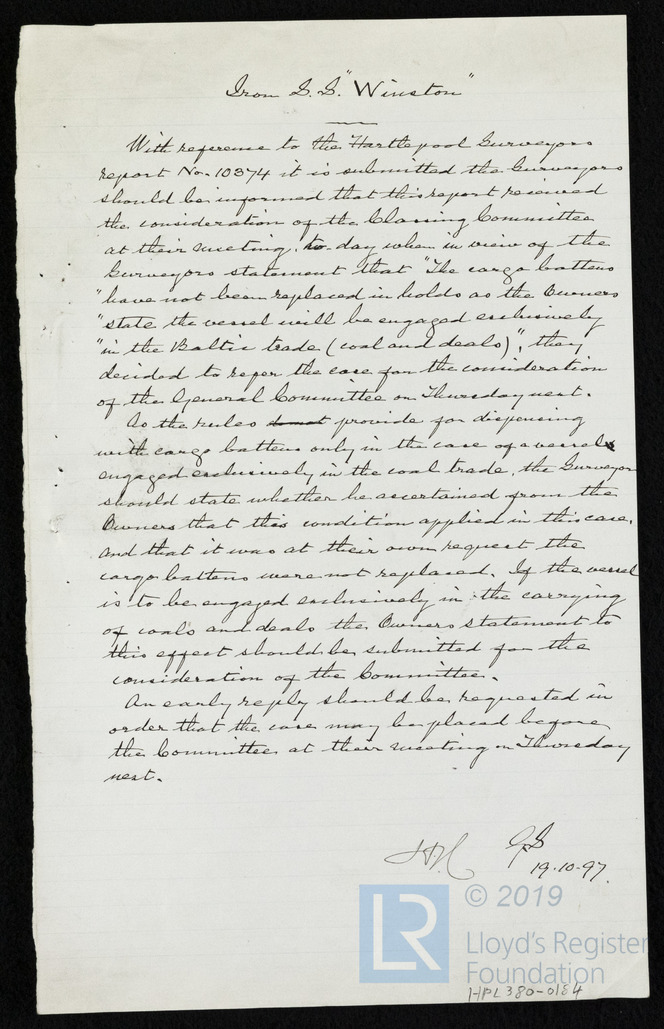 Iron S.S. "Winston"
With reference to the Hartlepool Surveyors
report No. 10374 it is submitted the Surveyors
should be informed that this report received
the consideration of the Classing Committee
at their meeting to-day when in view of the
Surveyors statement that "The cargo battens
"have not been replaced in holds as the Owners
"state the vessel will be engaged exclusively
"in the Baltic trade (coal and deals)", they
decided to refer the case for the consideration
of the General Committee on Thursday next.
As the rules do not provide for dispensing
with cargo battens only in the case of a vessel
engaged exclusively in the coal trade, the Surveyor
should state whether he ascertained from the
Owners that this condition applied in this case,
and that it was at their own request the
cargo battens were not replaced. If the vessel
is to be engaged exclusively in the carrying
of coals and deals the Owners statement to
this effect should be submitted for the
consideration of the Committee.
An early reply should be requested in
order that the case may be placed before
the Committee at their meeting on Thursday
next.
19.10.97.
LR
© 2019
Lloyd's Register
Foundation
HPL380-0184